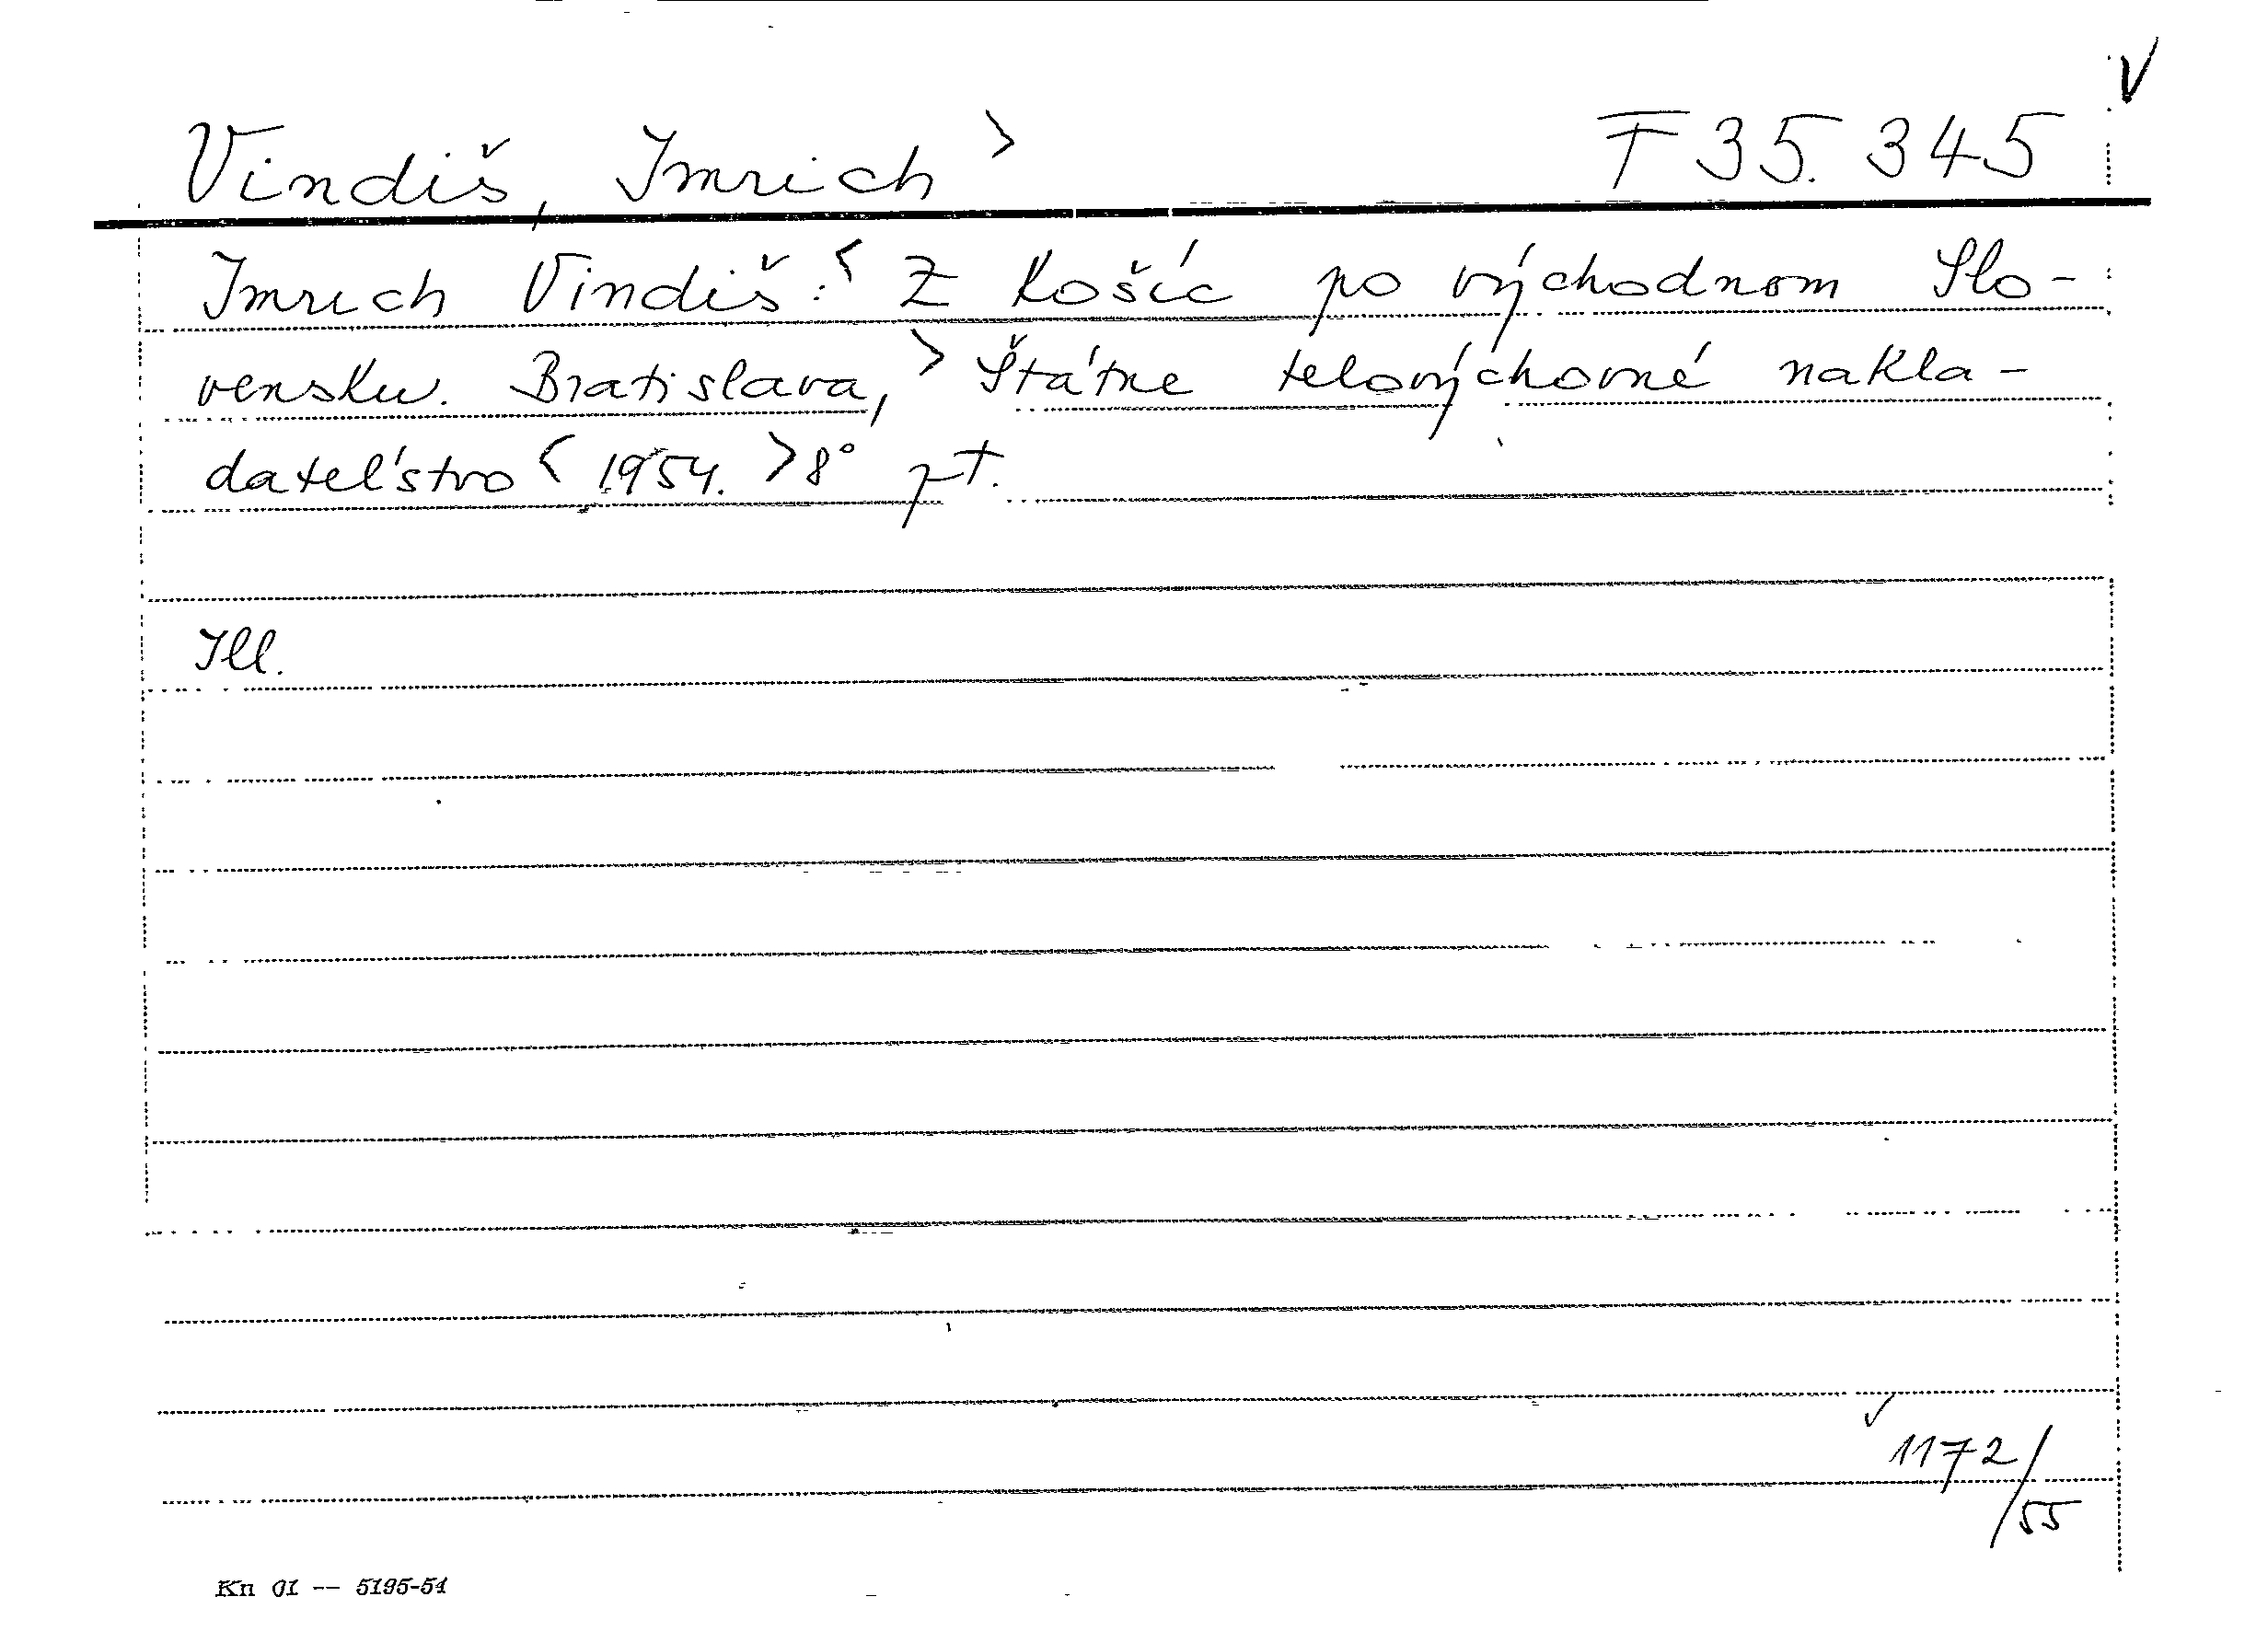 V
Vindiš, Imrich > F 35.345
Imrich Vindiš: < Z Košíc po východnom Slo-
vensku. Bratislava, > Štátne telovýchovné nakla-
dateľstvo < 1954. > 8° pt.
Ill.
✓
1172/
55
Kn 01 -- 5195-54